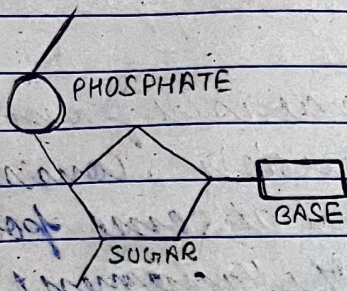 PHOSPHATE
BASE
SUGAR